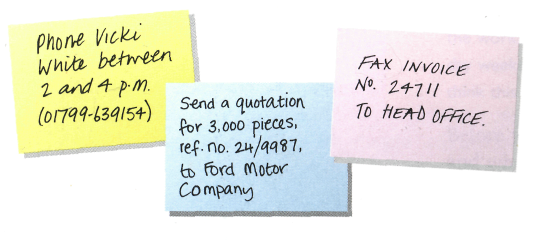 Phone Vicki
White between
2 and 4 p.m.
(01799-639154)
Send a quotation
for 3,000 pieces,
ref. no. 24/9987,
to Ford Motor
Company
FAX INVOICE
No. 24711
TO HEAD OFFICE.